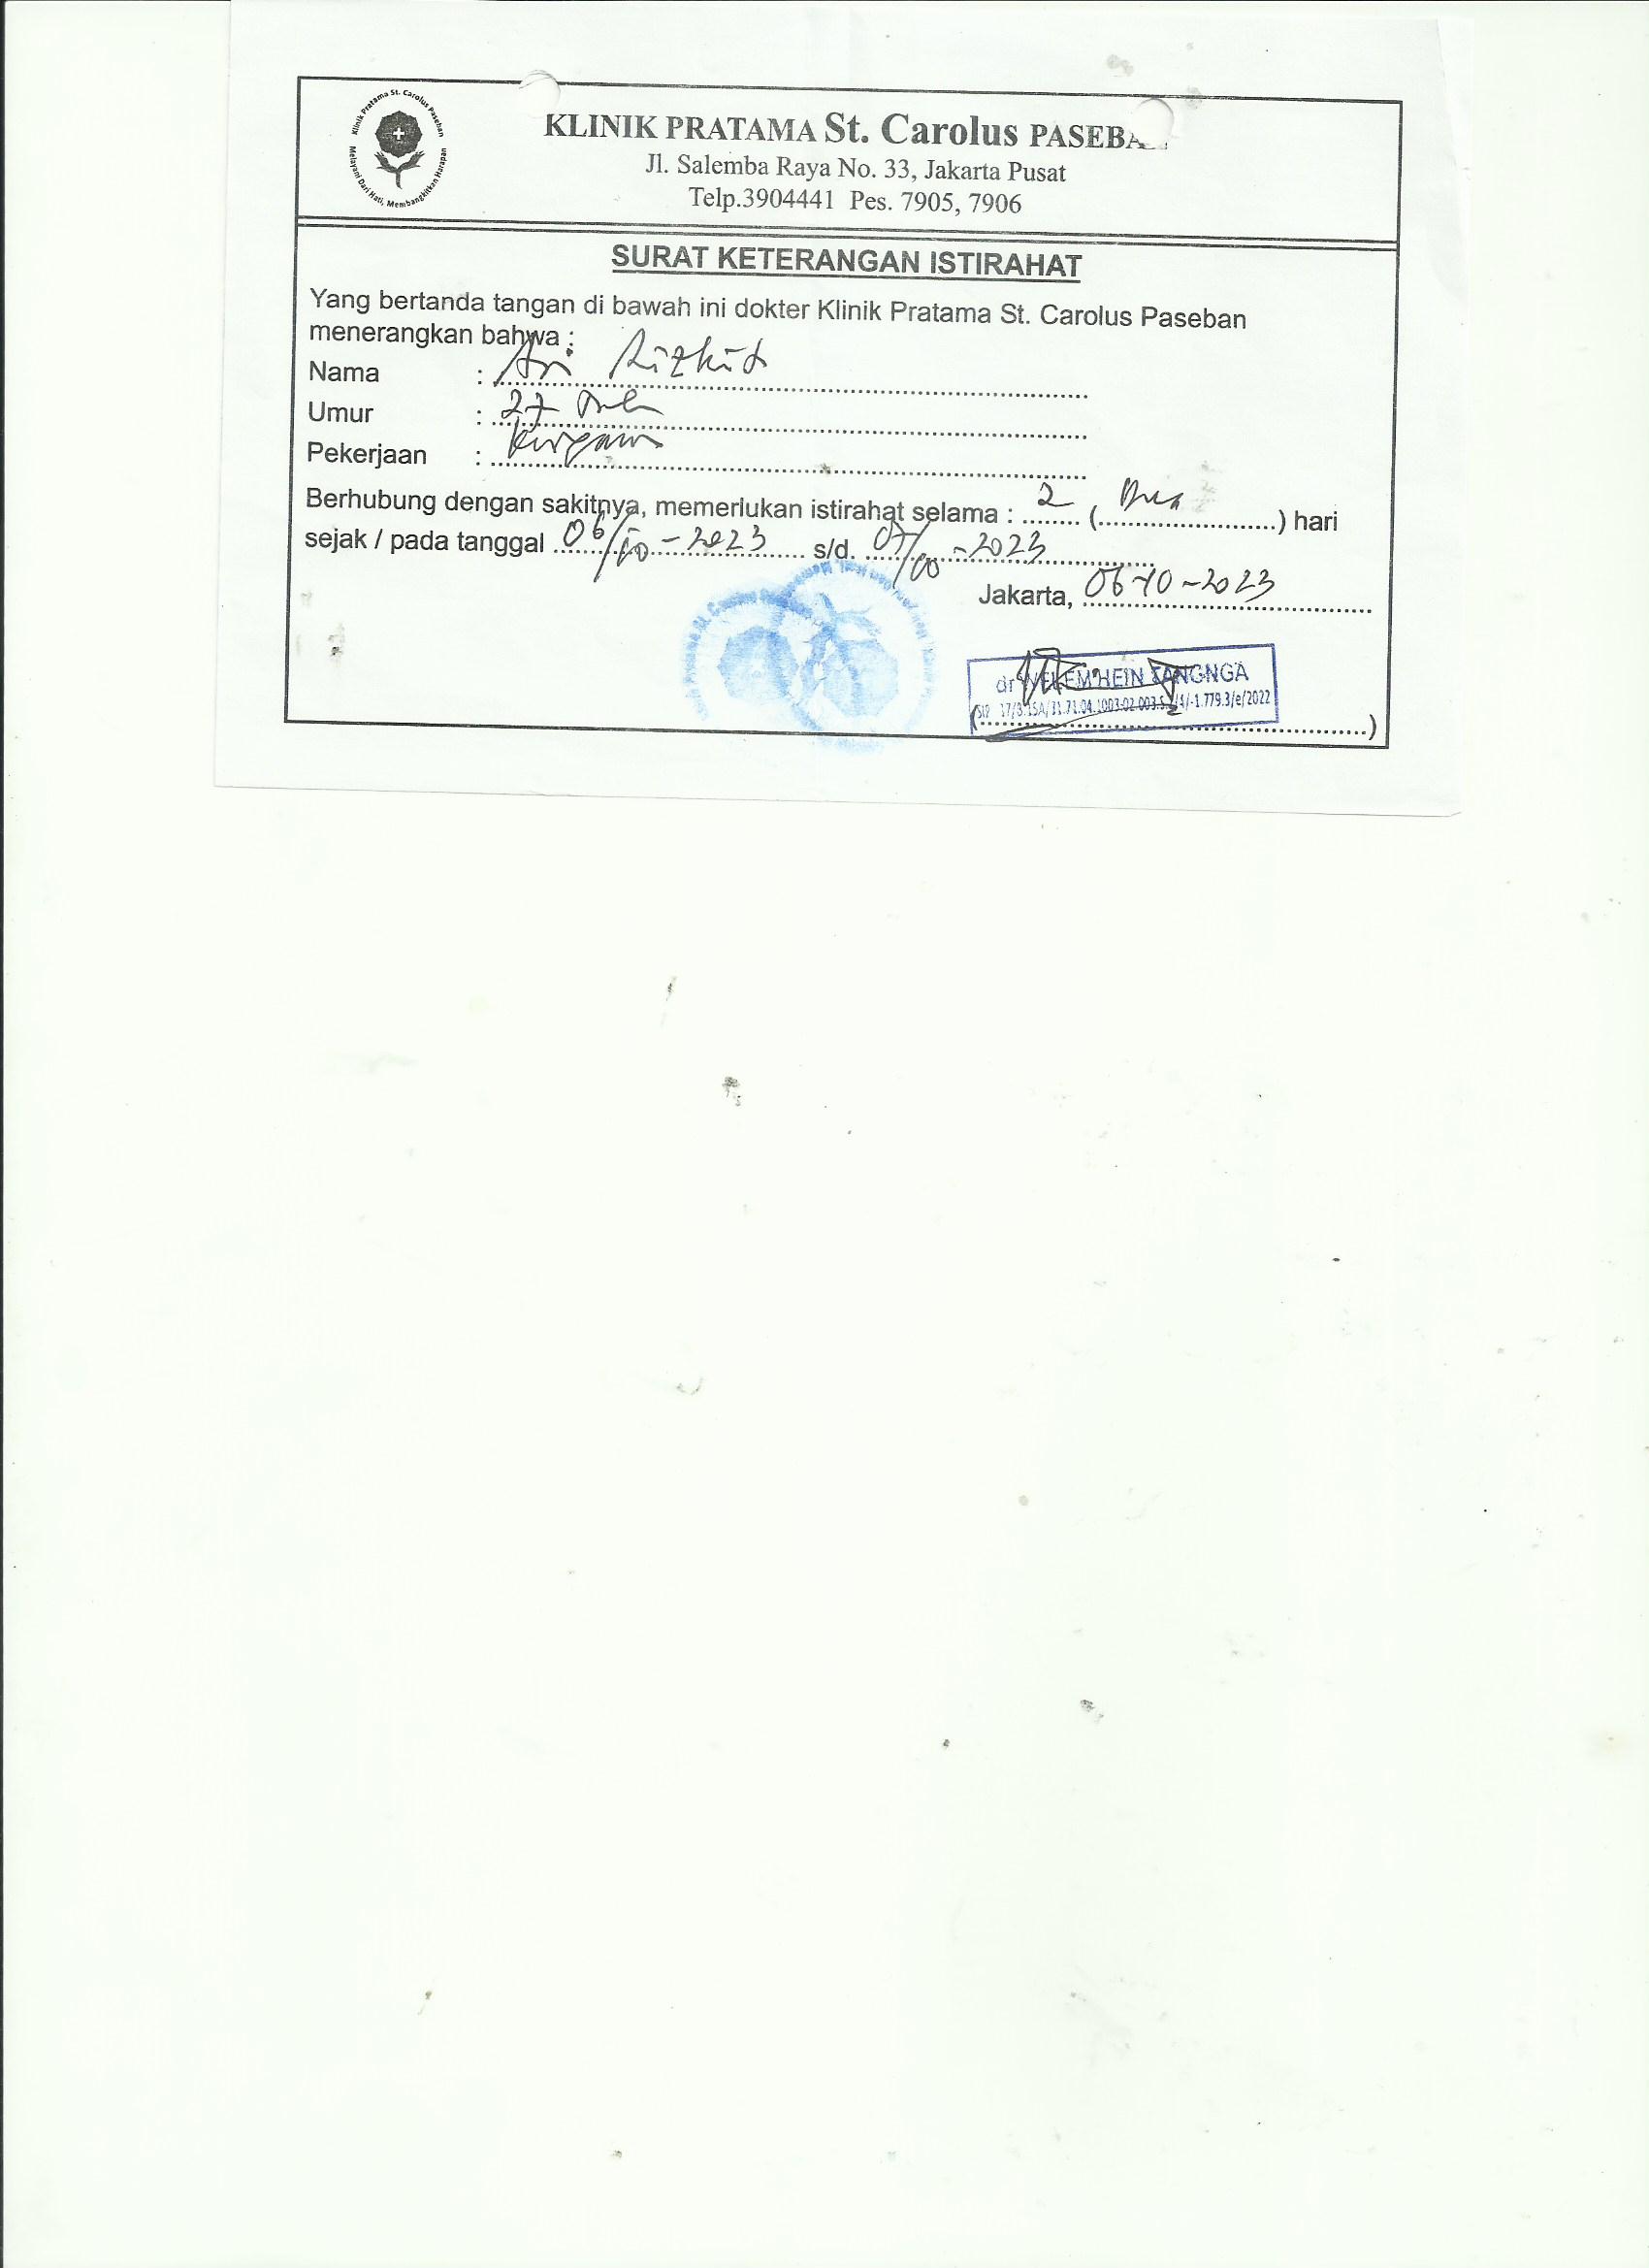 Klinik Pratama St. Carolus Paseban
Melayani Dari Hati, Membangkitkan Harapan
KLINIK PRATAMA St. Carolus PASEBA
Jl. Salemba Raya No. 33, Jakarta Pusat
Telp.3904441 Pes. 7905, 7906
SURAT KETERANGAN ISTIRAHAT
Yang bertanda tangan di bawah ini dokter Klinik Pratama St. Carolus Paseban
menerangkan bahwa :
Nama : Ari
Umur : 27
Pekerjaan :
Berhubung dengan sakitnya, memerlukan istirahat selama : 2 (Dua) hari
sejak / pada tanggal 06/10-2023 s/d. 07/10-2023
Jakarta, 06-10-2023
dr HEIN TANGNGA